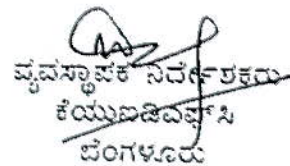 ವ್ಯವಸ್ಥಾಪಕ ನಿರ್ದೇಶಕರು
ಕೆಯುಐಡಿಎಫ್‌ಸಿ
ಬೆಂಗಳೂರು